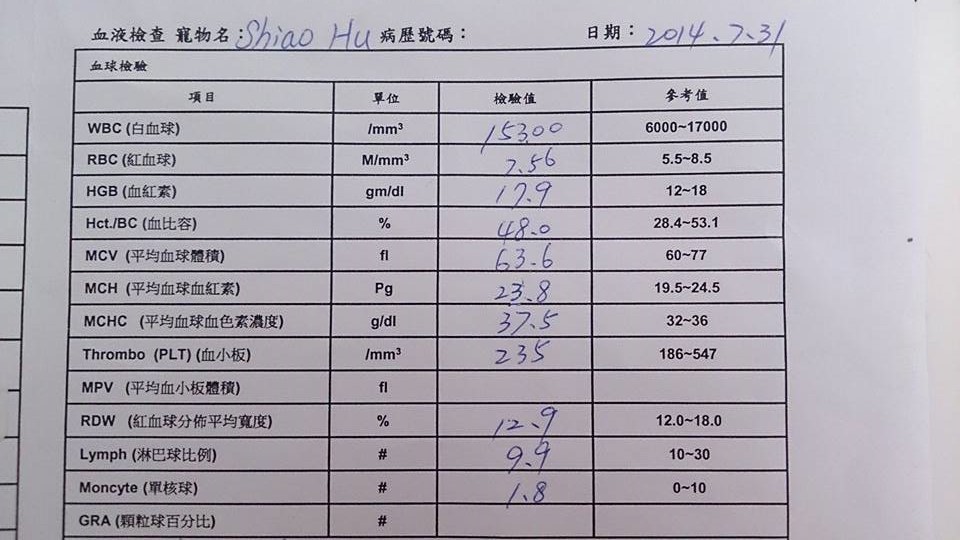 血液檢查 寵物名：Shiao Hu 病歷號碼： 日期：2014.7.31
血球檢驗
項目 單位 檢驗值 參考值
WBC (白血球) /mm³ 15300 6000~17000
RBC (紅血球) M/mm³ 7.56 5.5~8.5
HGB (血紅素) gm/dl 17.9 12~18
Hct./BC (血比容) % 48.0 28.4~53.1
MCV (平均血球體積) fl 63.6 60~77
MCH (平均血球血紅素) Pg 23.8 19.5~24.5
MCHC (平均血球血色素濃度) g/dl 37.5 32~36
Thrombo (PLT) (血小板) /mm³ 235 186~547
MPV (平均血小板體積) fl
RDW (紅血球分佈平均寬度) % 12.9 12.0~18.0
Lymph (淋巴球比例) # 9.9 10~30
Moncyte (單核球) # 1.8 0~10
GRA (顆粒球百分比) #